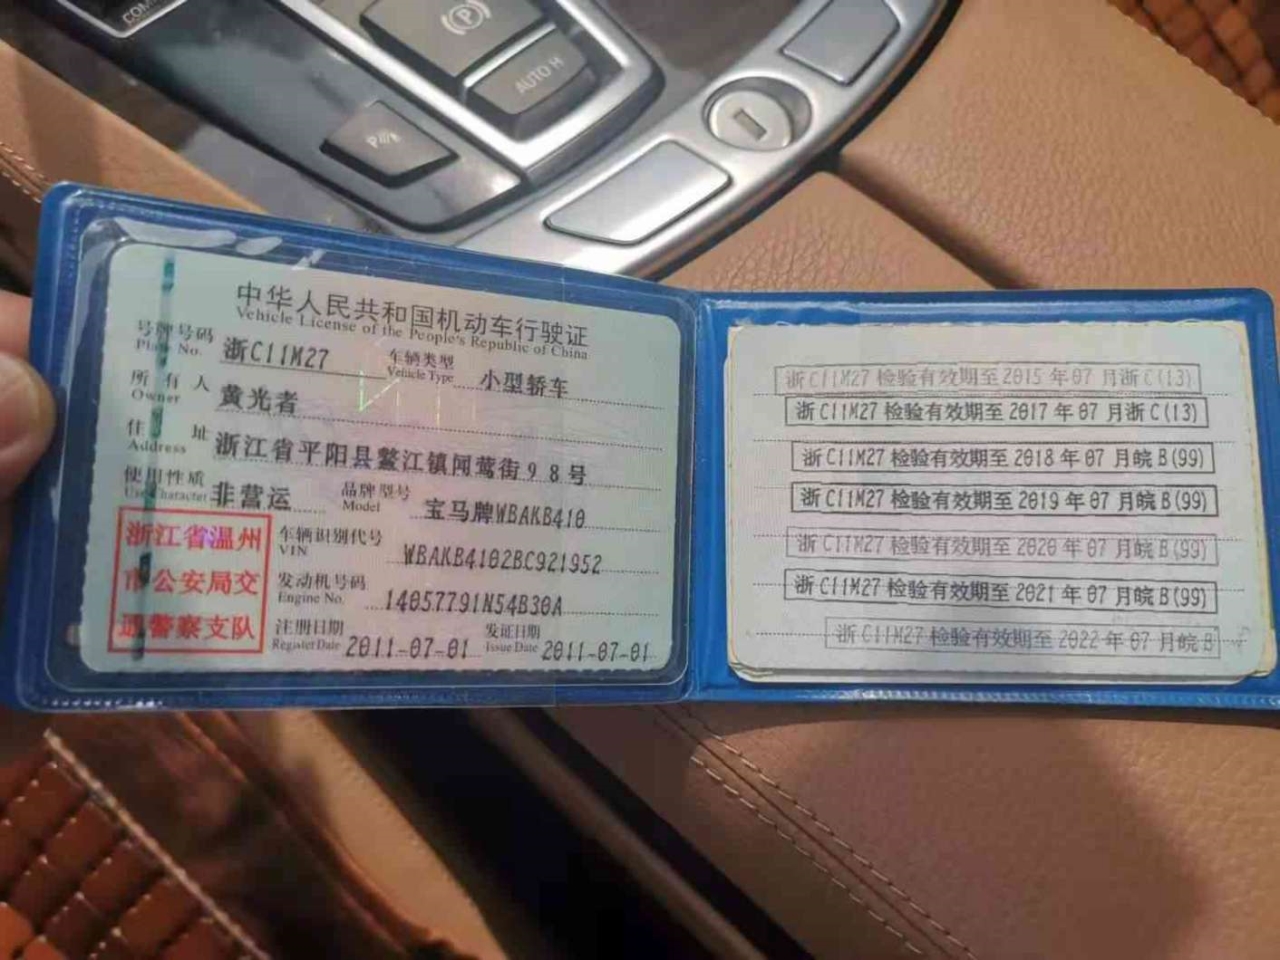 COM
P
AUTO H
P
中华人民共和国机动车行驶证
Vehicle License of the People's Republic of China
号牌号码 浙C11M27 车辆类型 小型轿车
Plate No. Vehicle Type
所有人 黄光者
Owner
住址 浙江省平阳县鳌江镇闻莺街98号
Address
使用性质 非营运 品牌型号 宝马牌WBAKB410
Use Character Model
浙江省温州
市公安局交
通警察支队
车辆识别代号 WBAKB4102BC921952
VIN
发动机号码 14057791N54B30A
Engine No.
注册日期 2011-07-01 发证日期 2011-07-01
Register Date Issue Date
浙C11M27 检验有效期至2015年07月浙C(13)
浙C11M27 检验有效期至2017年07月浙C(13)
浙C11M27 检验有效期至2018年07月皖B(99)
浙C11M27 检验有效期至2019年07月皖B(99)
浙C11M27 检验有效期至2020年07月皖B(99)
浙C11M27 检验有效期至2021年07月皖B(99)
浙C11M27 检验有效期至2022年07月皖B